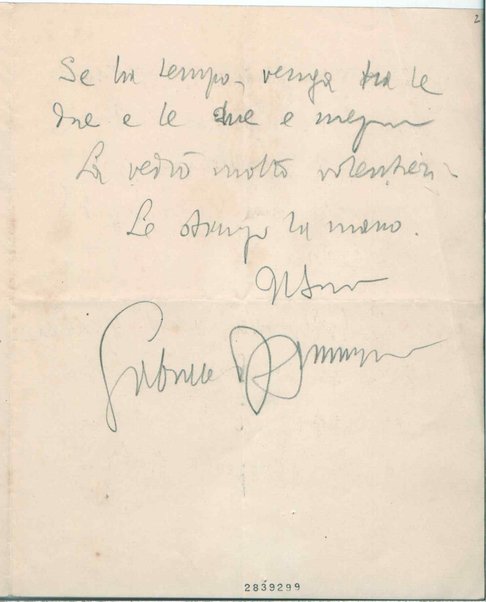 2
Se ha tempo, venga tra le
due e le due e mezzo
La vedrò molto volentieri -
Le stringo la mano.
Il Suo
Gabriele D'Annunzio
2839299